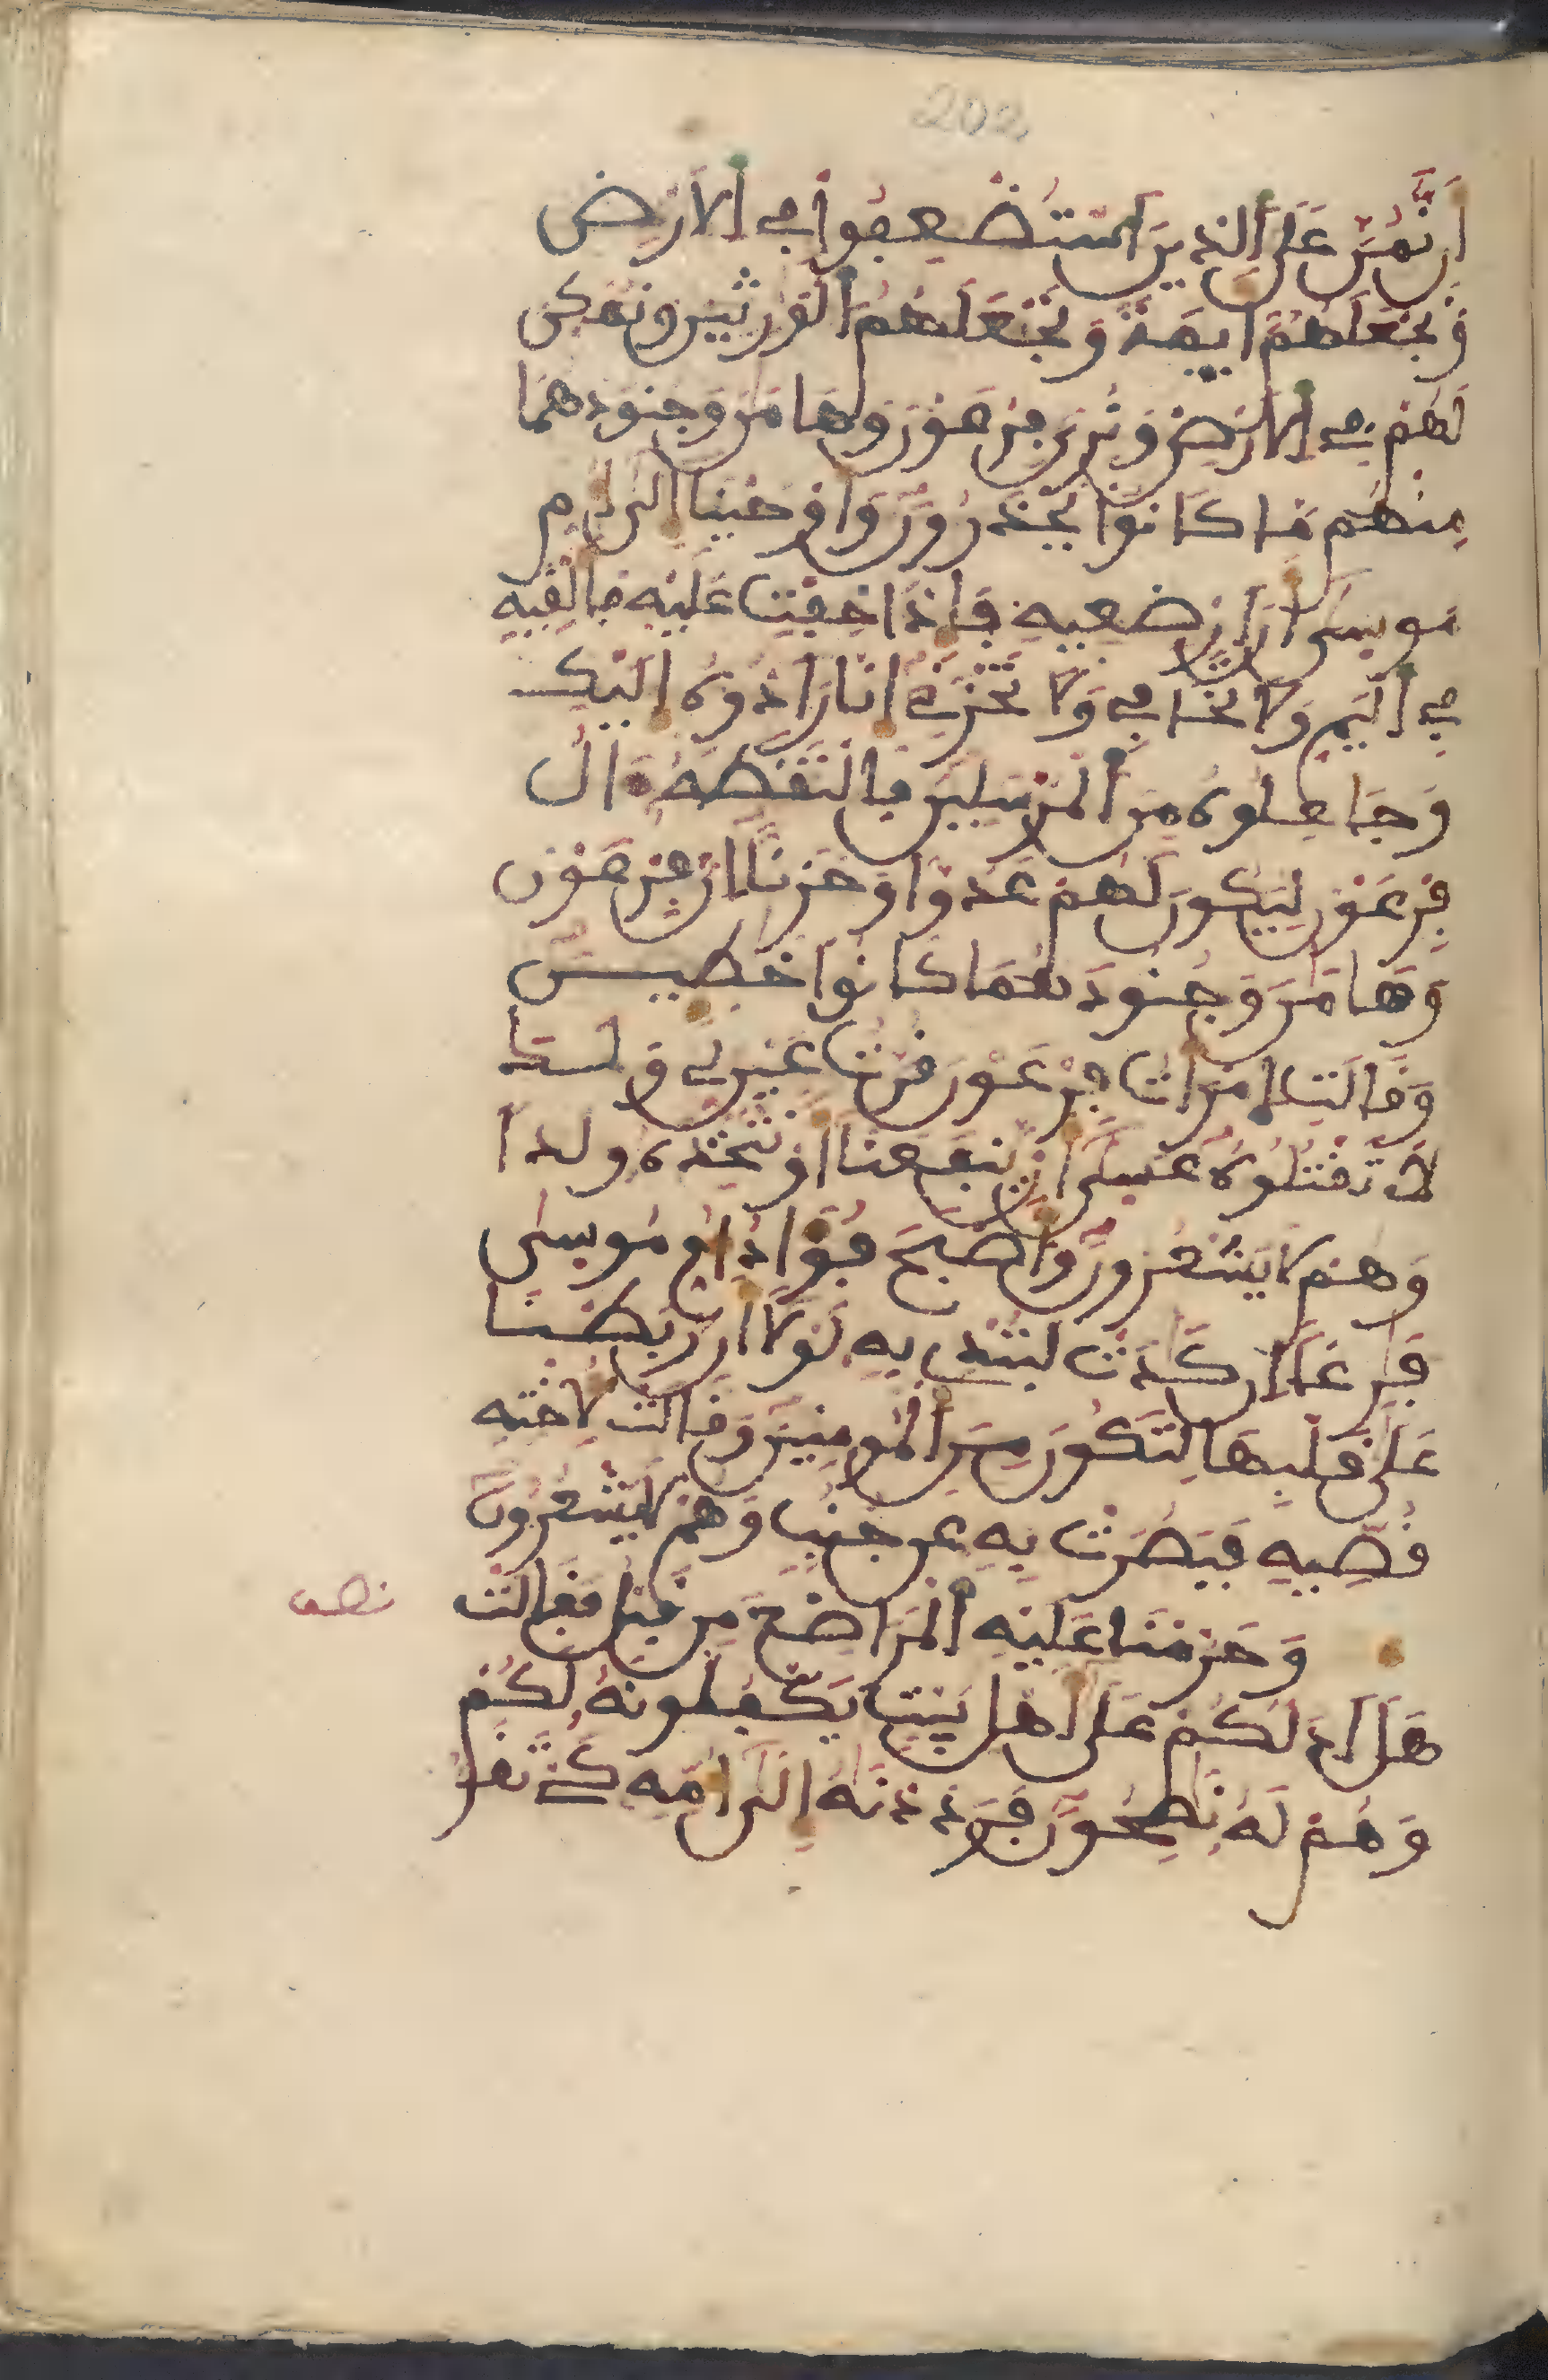 202
اَن نَّمُنَّ عَلَى ٱلذِينَ ٱسْتُضْعِفُواْ فِے ٱلَارْضِ
وَنَجْعَلَهُمُۥٓ أَيِمَّةً وَنَجْعَلَهُمُ ٱلْوَٰرِثِينَ وَنُمَكِّنَ
لَهُمْ فِے ٱلَارْضِ وَنُرِىَ فِرْعَوْنَ وَهَٰمَٰنَ وَجُنُودَهُمَا
مِنْهُم مَّا كَانُواْ يَحْذَرُونَ وَأَوْحَيْنَا إِلَىٰ أُمِّ
مُوسَىٰٓ أَنَ ارْضِعِيهِ فَإِذَا خِفْتِ عَلَيْهِ فَأَلْقِيهِ
فِے ٱلْيَمِّ وَلَا تَخَافِے وَلَا تَحْزَنِے إِنَّا رَآدُّوهُ إِلَيْكِ
وَجَاعِلُوهُ مِنَ ٱلْمُرْسَلِينَ فَالْتَقَطَهُۥٓ ءَالُ
فِرْعَوْنَ لِيَكُونَ لَهُمْ عَدُوّاً وَحَزَناً إِنَّ فِرْعَوْنَ
وَهَٰمَٰنَ وَجُنُودَهُمَا كَانُواْ خَٰطِـِٕينَ
وَقَالَتِ امْرَأَتُ فِرْعَوْنَ قُرَّتُ عَيْنٍ لِّے وَلَكَ
لَا تَقْتُلُوهُ عَسَىٰٓ أَنْ يَّنفَعَنَآ أَوْ نَتَّخِذَهُۥ وَلَداً
وَهُمْ لَا يَشْعُرُونَ وَأَصْبَحَ فُؤَادُ أُمِّ مُوسَىٰ
فَٰرِغاً إِن كَادَتْ لَتُبْدِے بِهِۦ لَوْلَآ أَن رَّبَطْنَا
عَلَىٰ قَلْبِهَا لِتَكُونَ مِنَ ٱلْمُومِنِينَ وَقَالَتْ لِأُخْتِهِۦ
قُصِّيهِ فَبَصُرَتْ بِهِۦ عَن جُنُبٍ وَهُمْ لَا يَشْعُرُونَ
وَحَرَّمْنَا عَلَيْهِ ٱلْمَرَاضِعَ مِن قَبْلُ فَقَالَتْ
نصف
هَلَ اَدُلُّكُمْ عَلَىٰٓ أَهْلِ بَيْتٍ يَكْفُلُونَهُۥ لَكُمْ
وَهُمْ لَهُۥ نَٰصِحُونَ فَرَدَدْنَٰهُ إِلَىٰٓ أُمِّهِۦ كَےْ تَقَرَّ